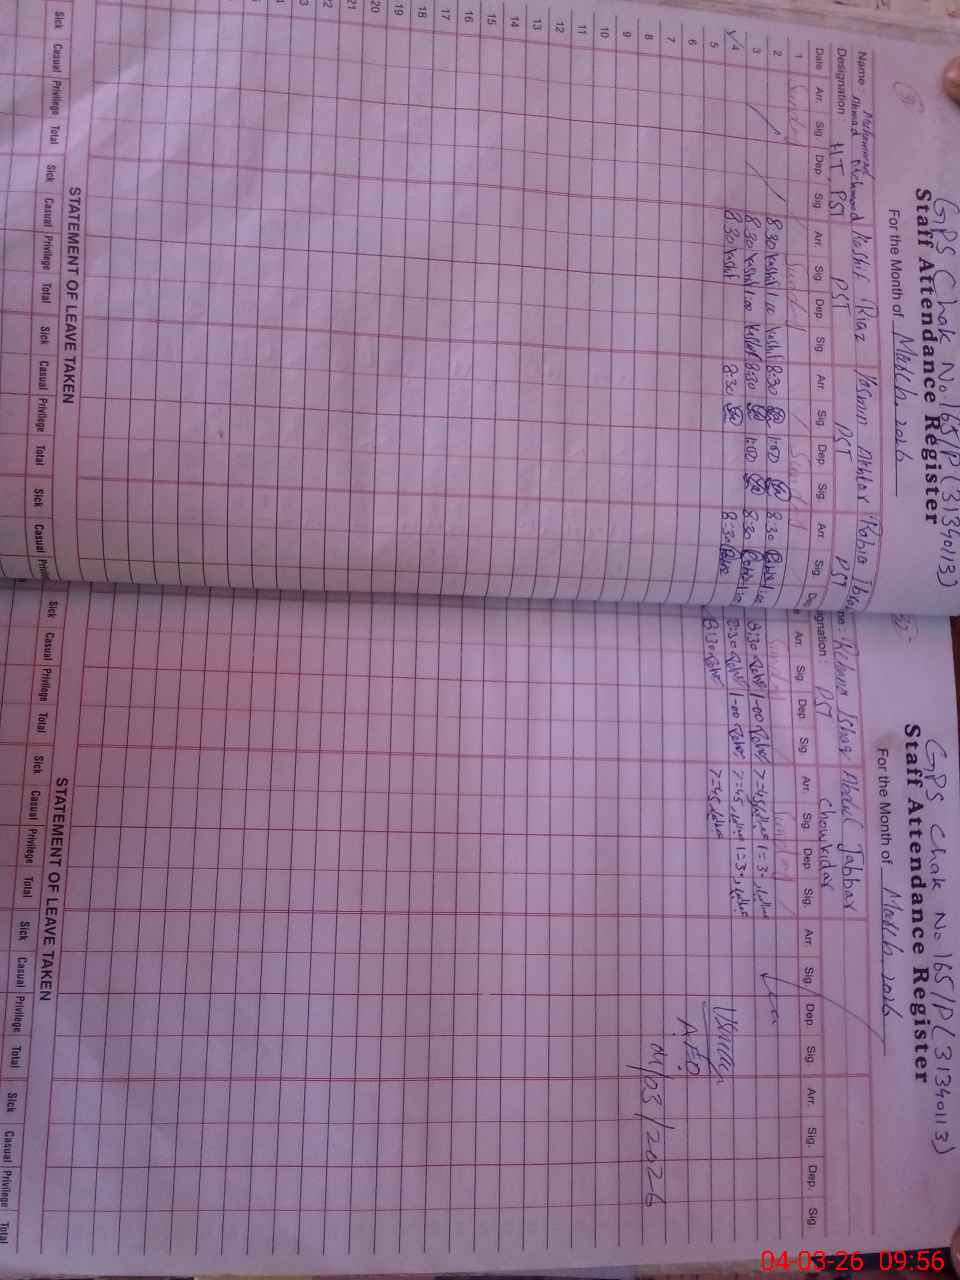 GPS Chak No 165/P (31340113)
Staff Attendance Register
For the Month of March, 2026
Name: Muhammad Ahmad Kashif Riaz Yasmin Akhtar Rabia
Designation: HT, PST PST PST PST
Date Arr. Sig Dep. Sig. Arr. Sig. Dep. Sig. Arr. Sig. Dep. Sig. Arr. Sig.
1 Sunday Sunday Sunday
2 8.30 Kashif 1.00 Kashif 8:30 1:00 8.30 Rabia
3 8.30 Kashif 1.00 Kashif 8:30 1:00 8:30 Rabia
4 8.30 Kashif 8:30 8:30 Rabia
5
6
7
8
9
10
11
12
13
14
15
16
17
18
19
20
21
22
STATEMENT OF LEAVE TAKEN
Sick Casual Privilege Total Sick Casual Privilege Total Sick Casual Privilege Total Sick Casual
GPS Chak No 165/P (31340113)
Staff Attendance Register
For the Month of March, 2026
Rehana Ishaq Abdul Jabbar
PST Chowkidar
Arr. Sig. Dep. Sig. Arr. Sig. Dep Sig. Arr. Sig. Dep. Sig. Arr. Sig. Dep. Sig.
Sunday Sunday
8:30 1-00 7=45 1=3
8:30 1-00 7=45 1=3
8:30 7=45
A.E.O
04/03/2026
STATEMENT OF LEAVE TAKEN
Sick Casual Privilege Total Sick Casual Privilege Total Sick Casual Privilege Total Sick Casual Privilege Total
04-03-26 09:56